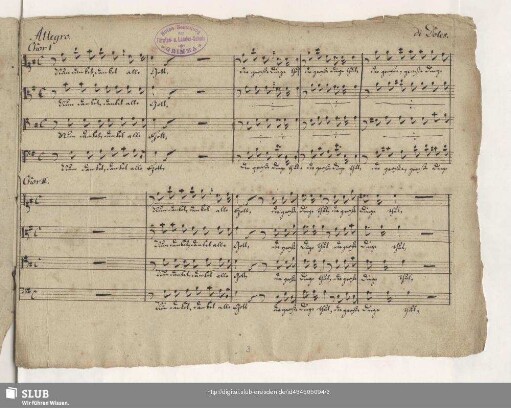 Allegro.
di Doles.
Chor I
Nun danket, danket alle Gott, die große Dinge thut, die große Dinge thut, die große, große Dinge
Nun danket, danket alle Gott,
Nun danket, danket alle Gott,
Nun danket, danket alle Gott, die große Dinge thut, die große Dinge thut, die große, große Dinge
Chor II.
Nun danket, danket alle Gott die große Dinge thut, die große Dinge thut,
Nun danket, danket alle Gott die große Dinge thut, die große Dinge thut,
Nun danket, danket alle Gott die große Dinge thut, die große Dinge thut,
Nun danket, danket alle Gott die große Dinge thut, die große Dinge thut,
SLUB
Wir führen Wissen.